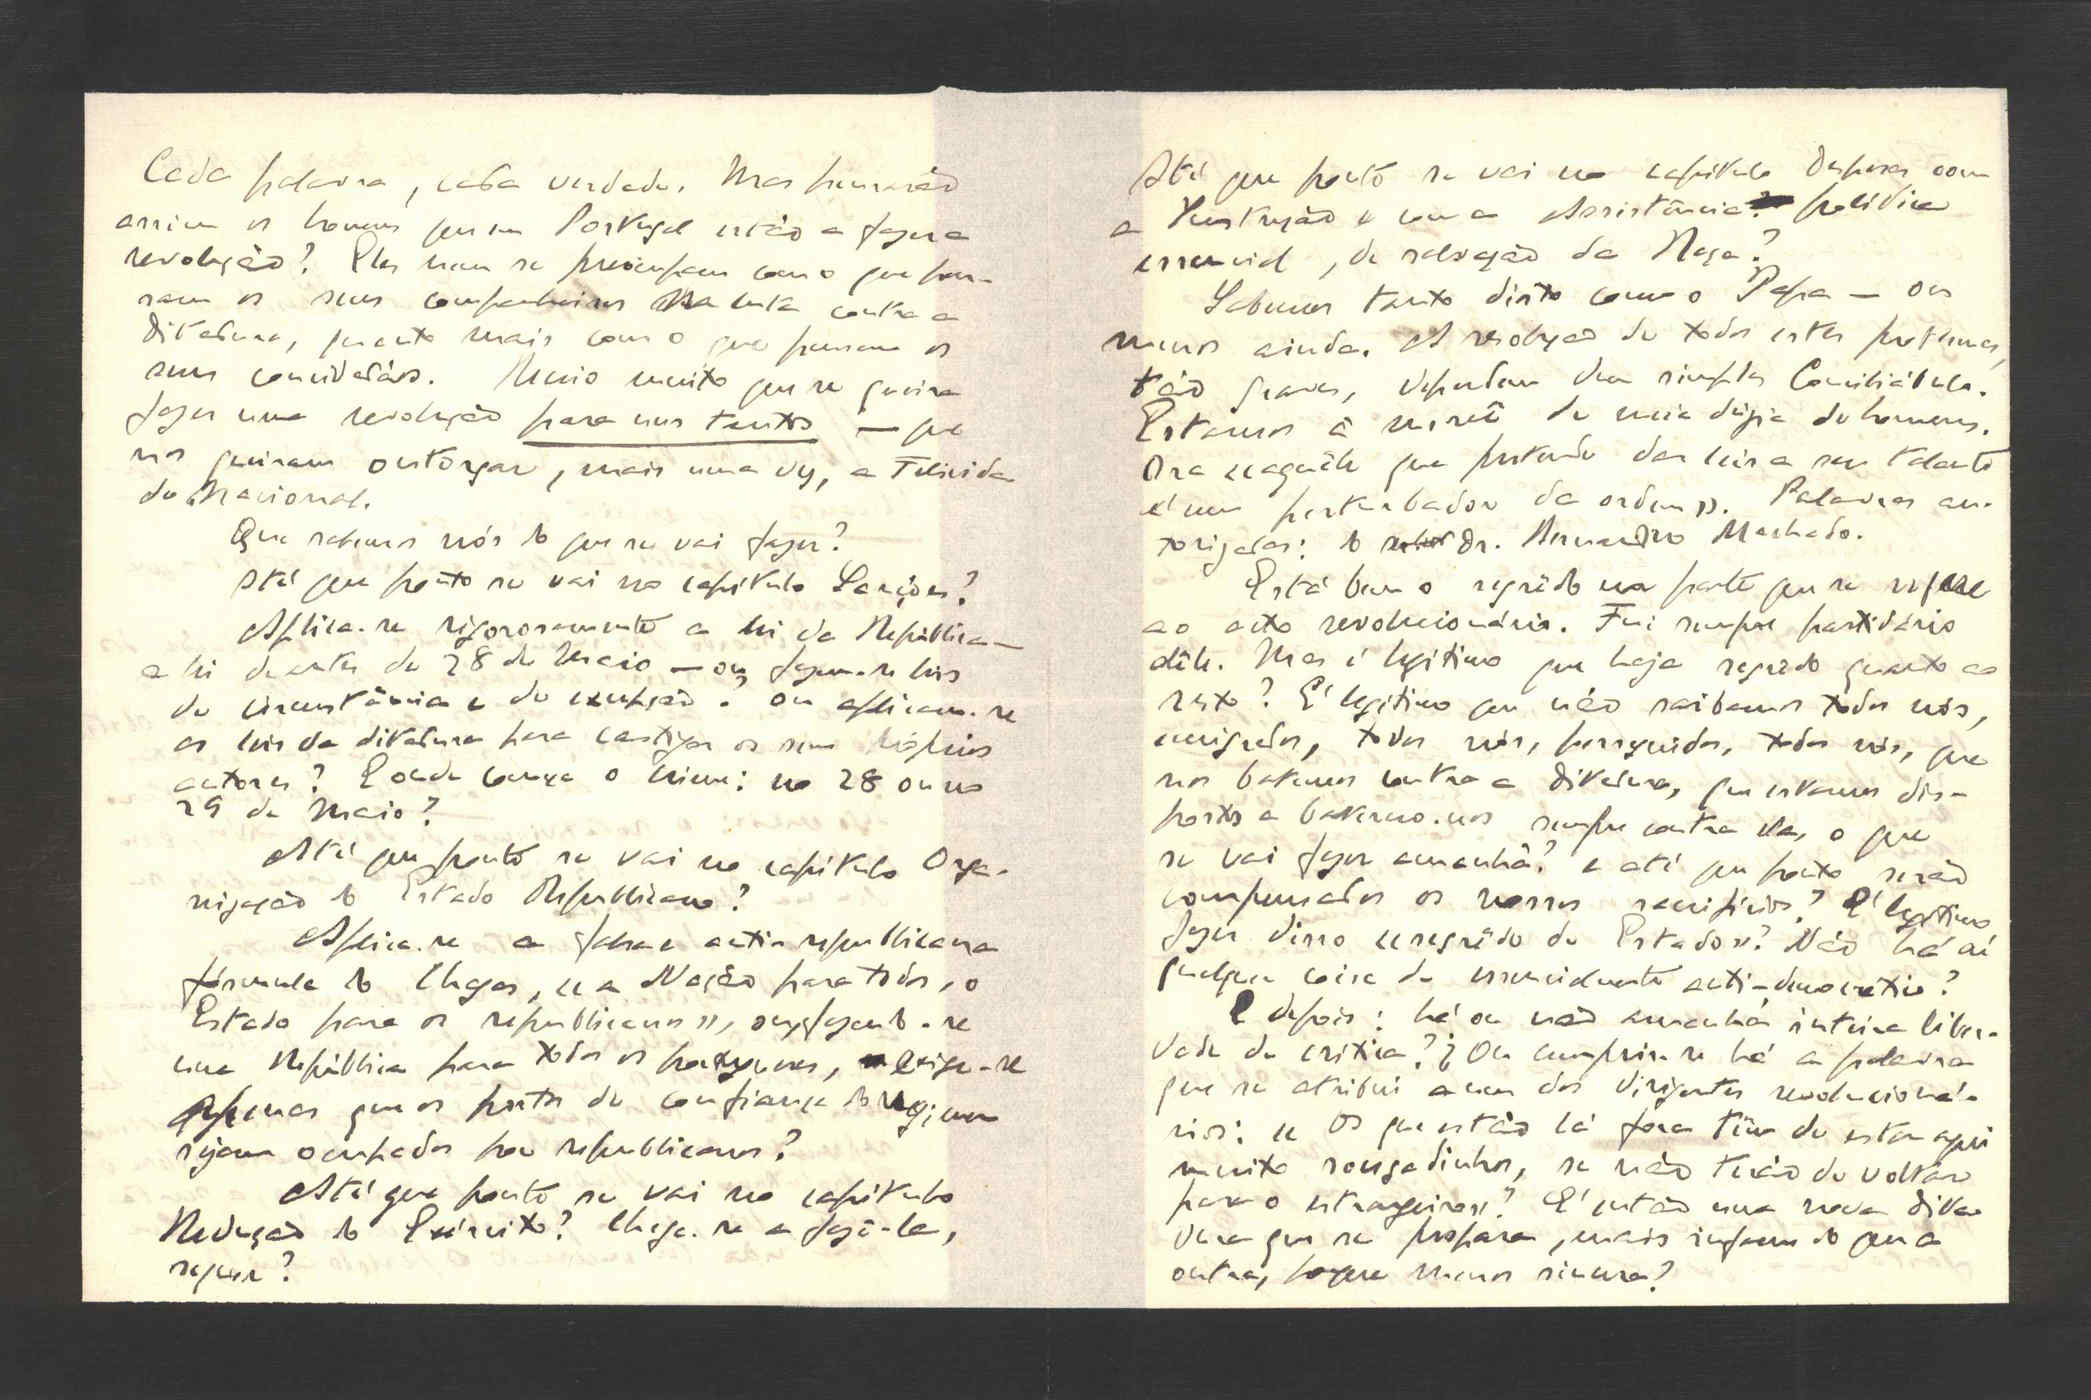 Cada palavra, cada verdade. Mas pensarão
assim os homens que em Portugal estão a fazer a
revolução? Eles nem se preocupam com o que pen-
sam os seus companheiros na luta contra a
ditadura, quanto mais com o que pensam os
seus concidadãos. Receio muito que se queira
fazer uma revolução para uns tantos — que
nos queiram outorgar, mais uma vez, a Felicida
de Nacional.
Que sabemos nós do que se vai fazer?
Até que ponto se vai no capítulo Sanções?
Aplica-se rigorosamente a lei da República —
a lei de antes de 28 de Maio — ou fazem-se leis
de circunstância e de excepção? Ou aplicam-se
as leis da ditadura para castigar os seus próprios
autores? E onde começa o crime: no 28 ou no
29 de Maio?
Até que ponto se vai no capítulo Orga-
nização do Estado Republicano?
Aplica-se a falsa e anti-republicana
fórmula do Chagas, «a Nação para todos, o
Estado para os republicanos», ou, fazendo-se
uma República para todos os portugueses, exige-se
apenas que os postos de confiança do regimen
sejam ocupados por republicanos?
Até que ponto se vai no capítulo
Redução do Exército? Chega-se a fazê-la,
sequer?
Até que ponto se vai no capítulo Despesas com
a Instrução e com a Assistência? política
essencial, de salvação da Raça?
Sabemos tanto disto como o Papa — ou
menos ainda. A resolução de todos estes problemas,
tão graves, dependem dum simples Conciliábulo.
Estamos à mercê de meia dúzia de homens.
Ora «aquêle que pretende dar leis a seu talante
é um perturbador da ordem». Palavras au-
torizadas: do Dr. Bernardino Machado.
Está bem o segrêdo na parte que se refere
ao acto revolucionário. Fui sempre partidário
dêle. Mas é legítimo que haja segrêdo quanto ao
resto? É legítimo que não saibamos todos nós,
emigrados, todos nós, perseguidos, todos nós, que
nos batemos contra a ditadura, que estamos dis-
postos a batermo-nos sempre contra ela, o que
se vai fazer amanhã? e até que ponto serão
compensados os nossos sacrifícios? É legítimo
fazer disso «segrêdo de Estado»? Não há aí
qualquer coisa de essencialmente anti-democrático?
E depois: há ou não amanhã inteira liber-
dade de crítica? Ou cumprir-se há a palavra
que se atribui a um dos dirigentes revolucioná-
rios: «Os que estão lá fora têm de estar aqui
muito sossegadinhos, se não terão de voltar
para o estrangeiro»? É então uma nova dita-
dura que se prepara, mais infame do que a
outra, porque menos sincera?